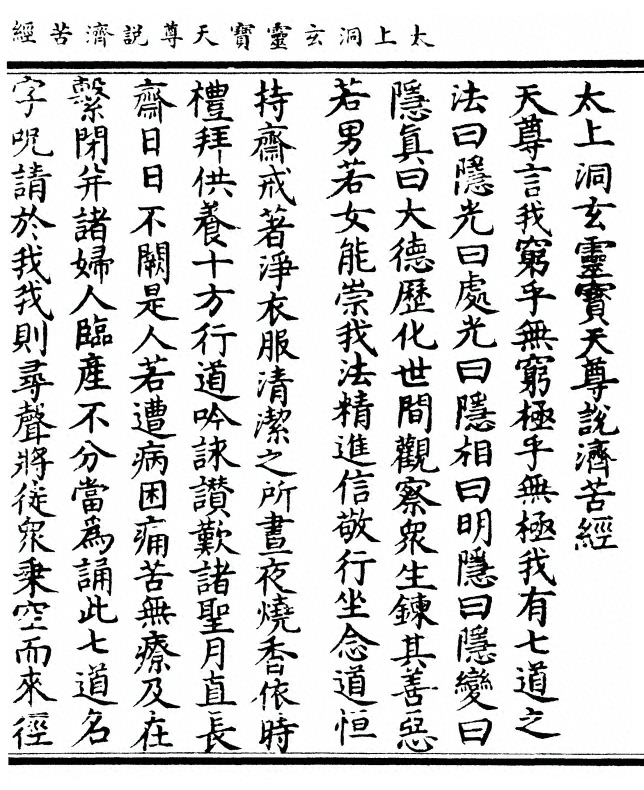 太上洞玄靈寶天尊說濟苦經
太上洞玄靈寶天尊說濟苦經
天尊言我窮乎無窮極乎無極我有七道之
法曰隱光曰處光曰隱相曰明隱曰隱變曰
隱真曰大德歷化世間觀察眾生鍊其善惡
若男若女能崇我法精進信敬行坐念道恒
持齋戒著淨衣服清潔之所晝夜燒香依時
禮拜供養十方行道吟詠讚歎諸聖月直長
齋日日不闕是人若遭病困痛苦無療及在
繫閉并諸婦人臨產不分當為誦此七道名
字呪請於我我則尋聲將從眾乘空而來徑